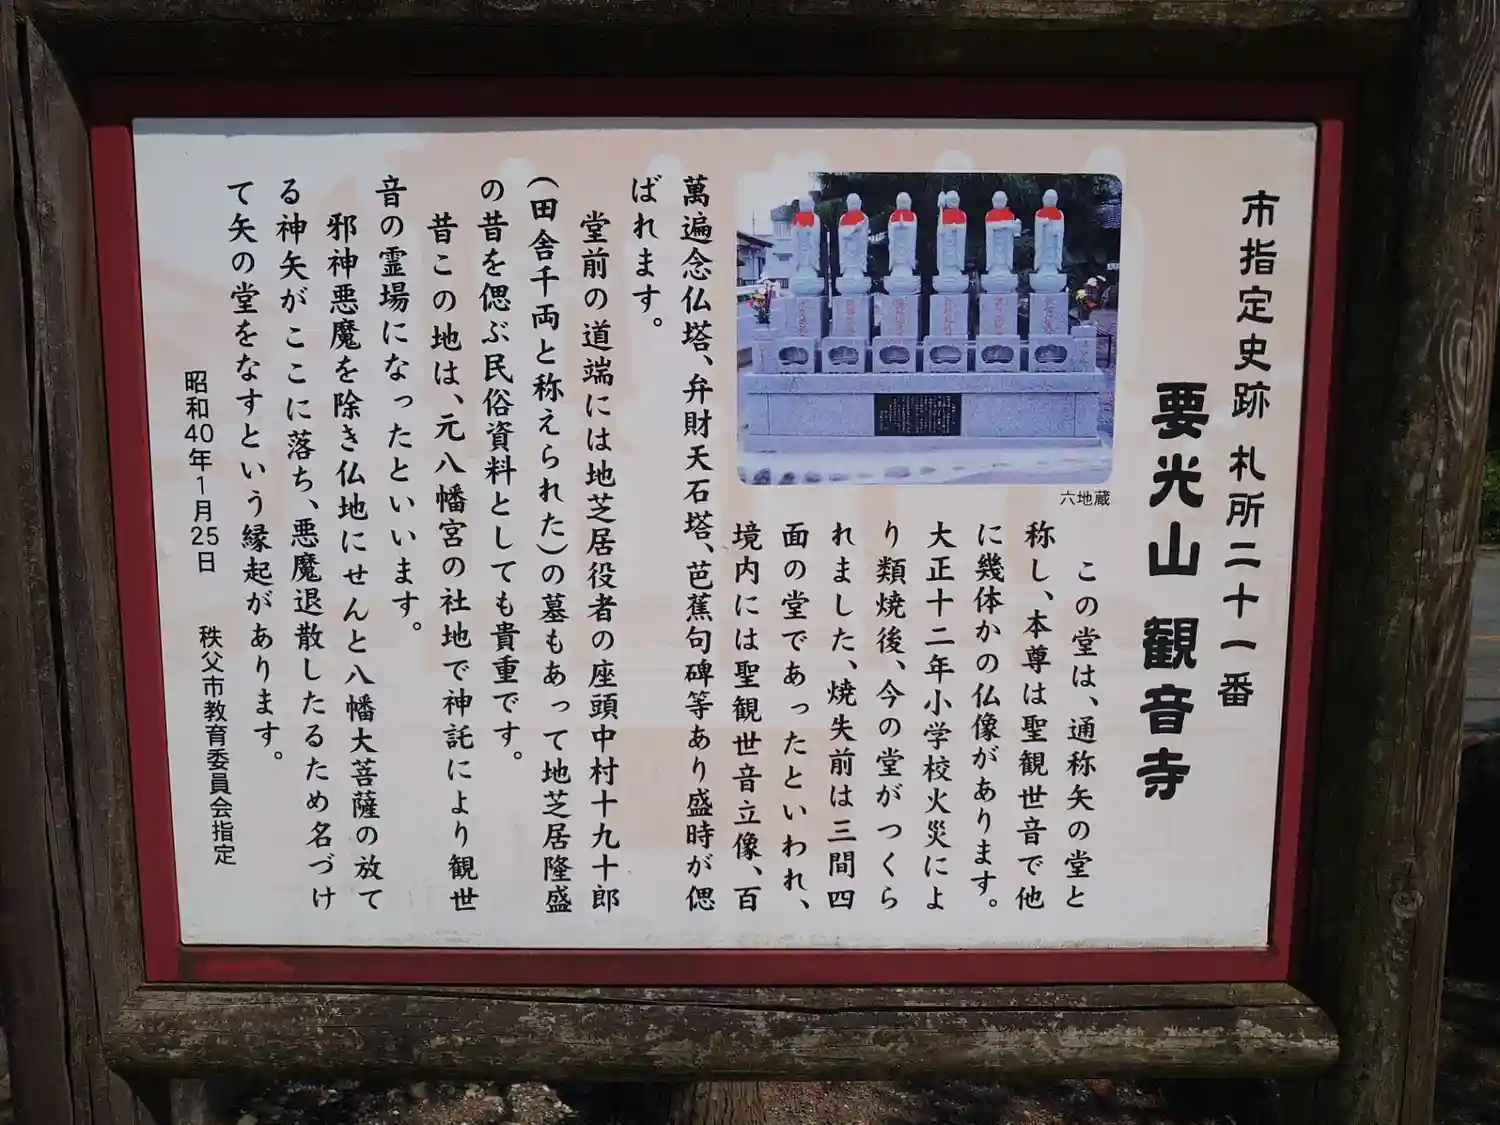 市指定史跡 札所二十一番
要光山 観音寺
六地蔵
この堂は、通称矢の堂と
称し、本尊は聖観世音で他
に幾体かの仏像があります。
大正十二年小学校火災によ
り類焼後、今の堂がつくら
れました、焼失前は三間四
面の堂であったといわれ、
境内には聖観世音立像、百
萬遍念仏塔、弁財天石塔、芭蕉句碑等あり盛時が偲
ばれます。
堂前の道端には地芝居役者の座頭中村十九十郎
(田舎千両と称えられた)の墓もあって地芝居隆盛
の昔を偲ぶ民俗資料としても貴重です。
昔この地は、元八幡宮の社地で神託により観世
音の霊場になったといいます。
邪神悪魔を除き仏地にせんと八幡大菩薩の放て
る神矢がここに落ち、悪魔退散したるため名づけ
て矢の堂をなすという縁起があります。
昭和40年1月25日 秩父市教育委員会指定